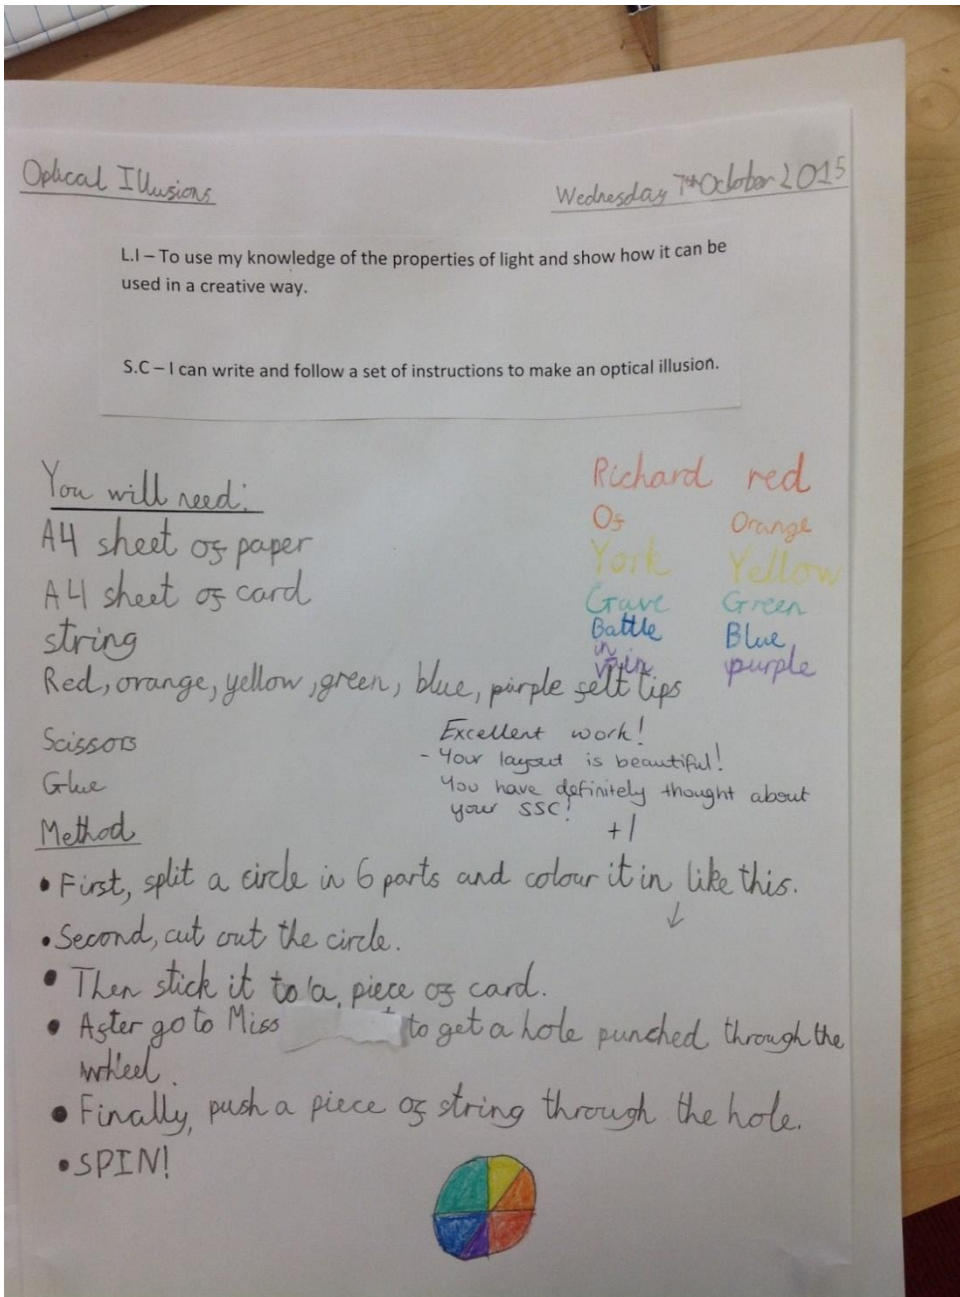 Optical Illusions
Wednesday 7th October 2015
L.I – To use my knowledge of the properties of light and show how it can be
used in a creative way.
S.C – I can write and follow a set of instructions to make an optical illusion.
You will need:
A4 sheet of paper
A4 sheet of card
string
Red, orange, yellow, green, blue, purple felt tips
Scissors
Glue
Richard red
Of Orange
York Yellow
Gave Green
Battle Blue
in
vain purple
Excellent work!
- Your layout is beautiful!
You have definitely thought about
your SSC!
+1
Method
• First, split a circle in 6 parts and colour it in like this.
↓
• Second, cut out the circle.
• Then stick it to a piece of card.
• After go to Miss to get a hole punched through the
wheel.
• Finally, push a piece of string through the hole.
• SPIN!